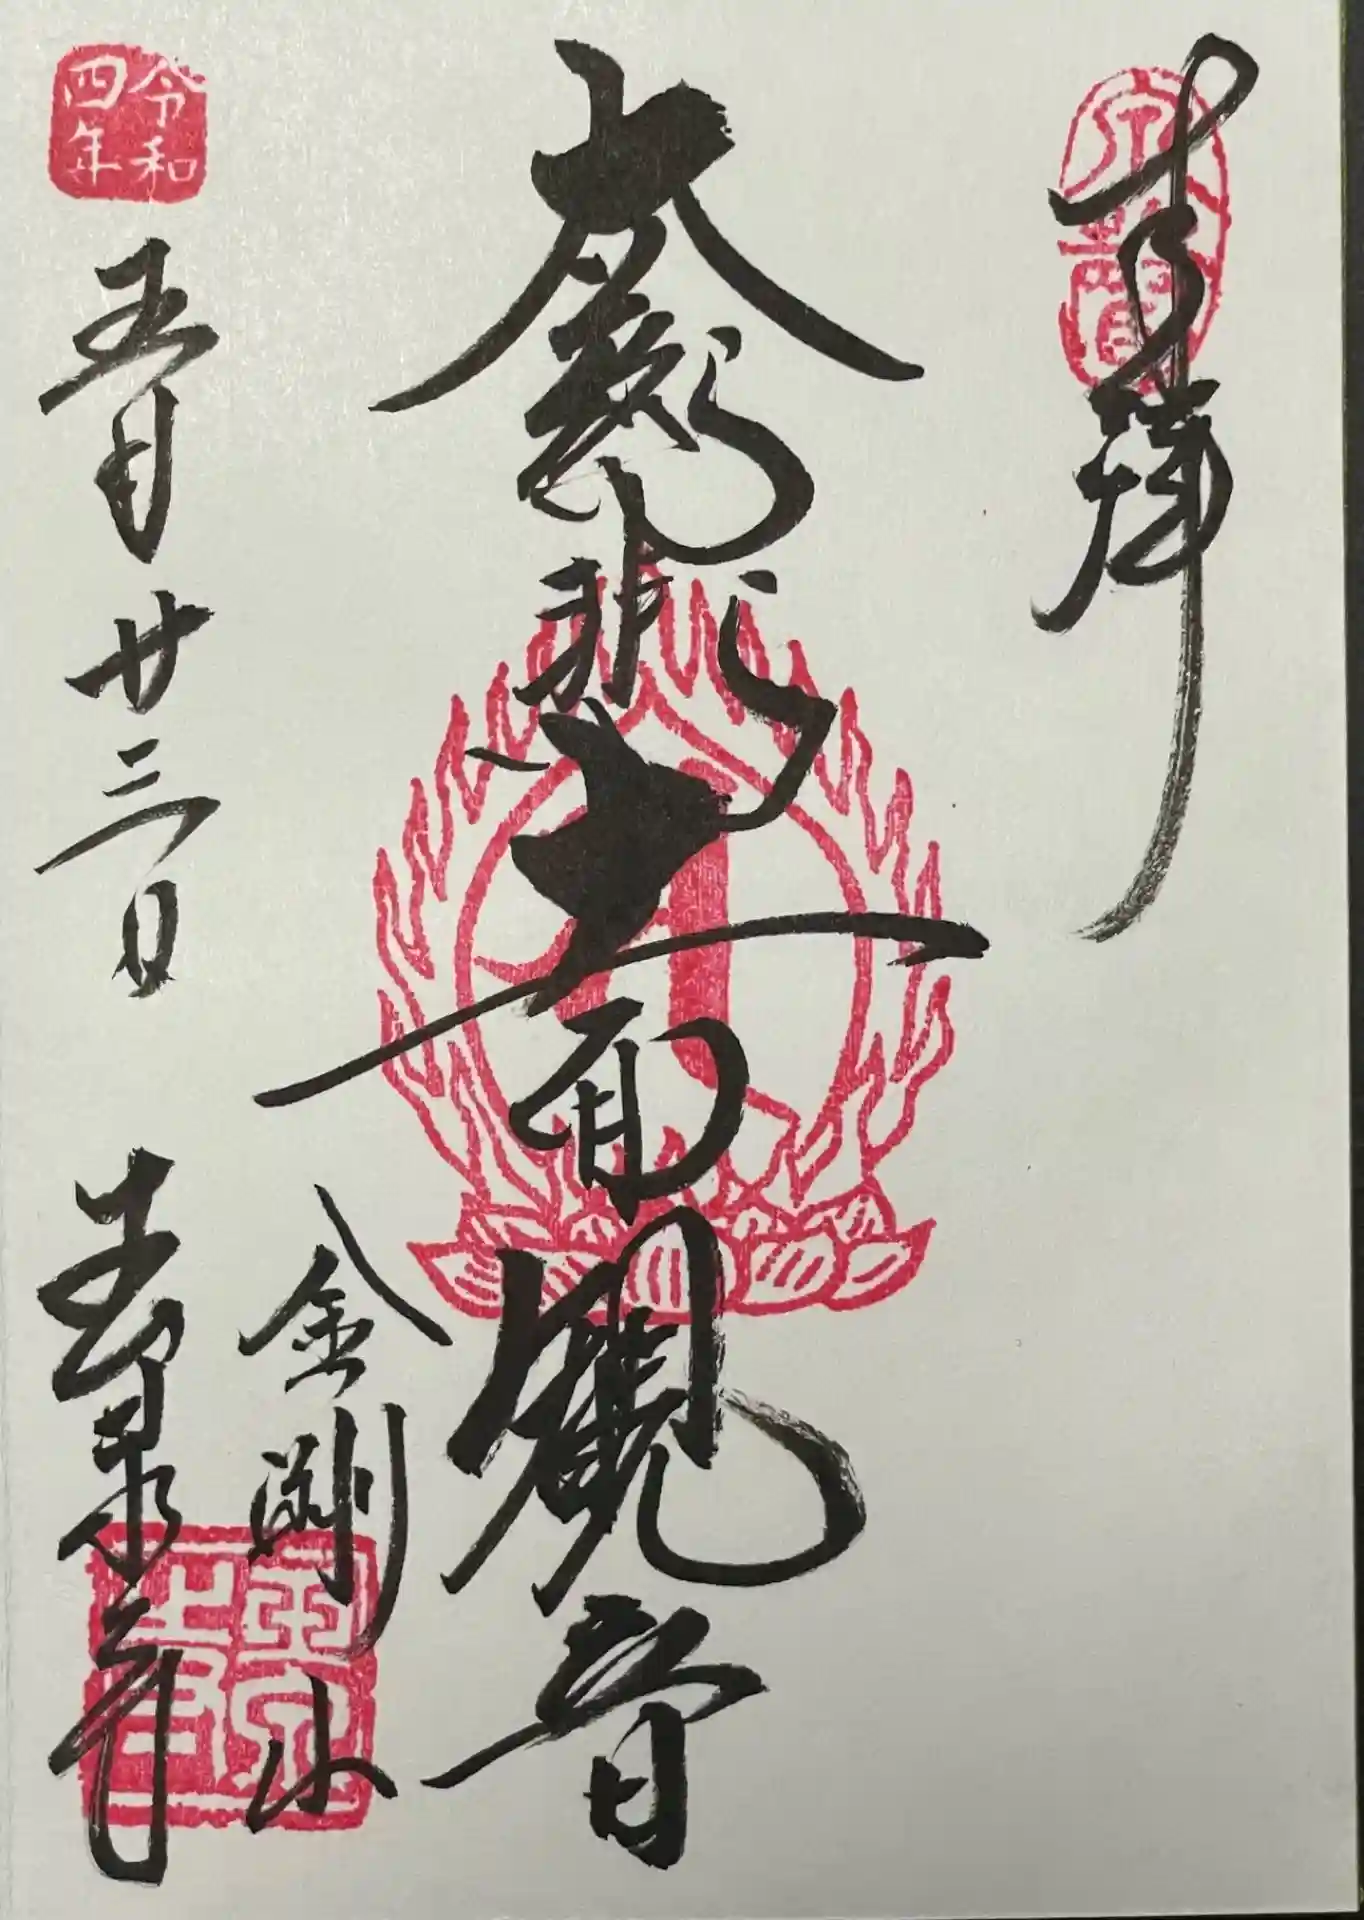 奉拝
大慈悲十一面観音
金剛山
令和四年
五月廿三日
玉泉寺